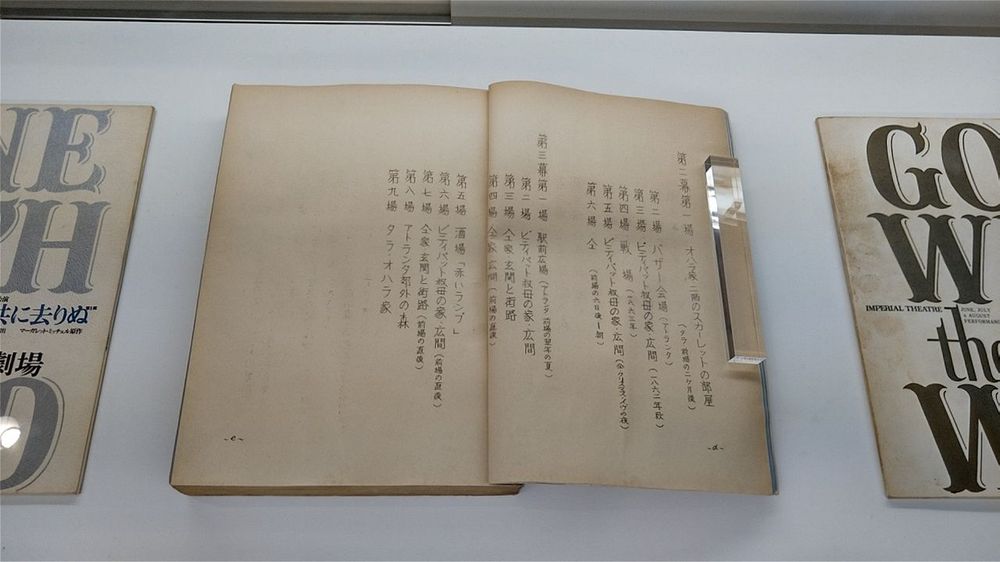 NE
TH
共に去りぬ
マーガレット・ミッチェル原作
劇場
O
第二幕第一場 オハラ家二階のスカーレットの部屋
(タラ 前場の二ヶ月後)
第二場 バザー会場(アトランタ)
第三場 ピティパット叔母の家・広間(一八六二年秋)
第四場 戦場(一八六三年)
第五場 ピティパット叔母の家・広間(仝・クリスマスイヴの夜)
第六場 仝(前場の六日後―朝)
-d-
第三幕第一場 駅前広場(アトランタ 前場の翌年の夏)
第二場 ピティパット叔母の家・広間
第三場 仝家・玄関と街路
第四場 仝家・広間(前場の直後)
第五場 酒場「赤いランプ」
第六場 ピティパット叔母の家・広間(前場の直後)
第七場 仝家・玄関と街路(前場の直後)
第八場 アトランタ郊外の森
第九場 タラ・オハラ家
-e-
GO
W
IMPERIAL THEATRE
JUNE, JULY
& AUGUST
PERFORMANCE
the
W